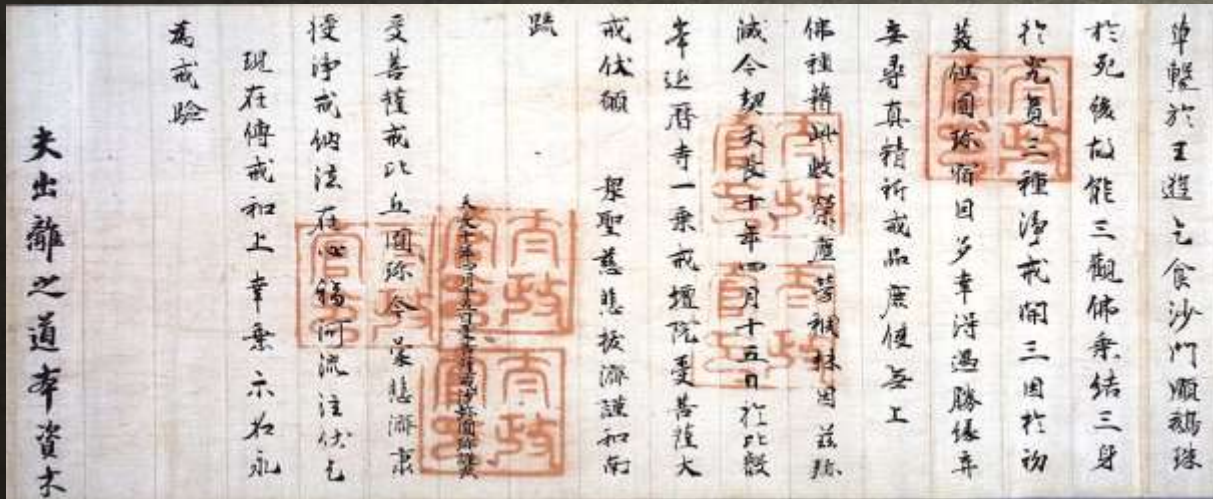 草繫於王遊乞食沙門顧鵝珠
於死後故能三觀佛乘結三身
於究竟三種淨戒開三因於初
發但圓珎宿因多幸得遇勝緣弃
妄尋真精祈戒品庶使無上
佛種藉此敷榮塵勞禍株因茲殄
滅今契天長十年四月十五日於比叡
峯延曆寺一乘戒壇院受菩薩大
戒伏願 衆聖慈悲拔濟謹和南
疏
天長十年四月十五日
受菩薩戒比丘圓珎今蒙慈濟肅
授淨戒納法在心福河流注伏乞
現在傳戒和上幸垂示名永
為戒驗
夫出離之道本資木